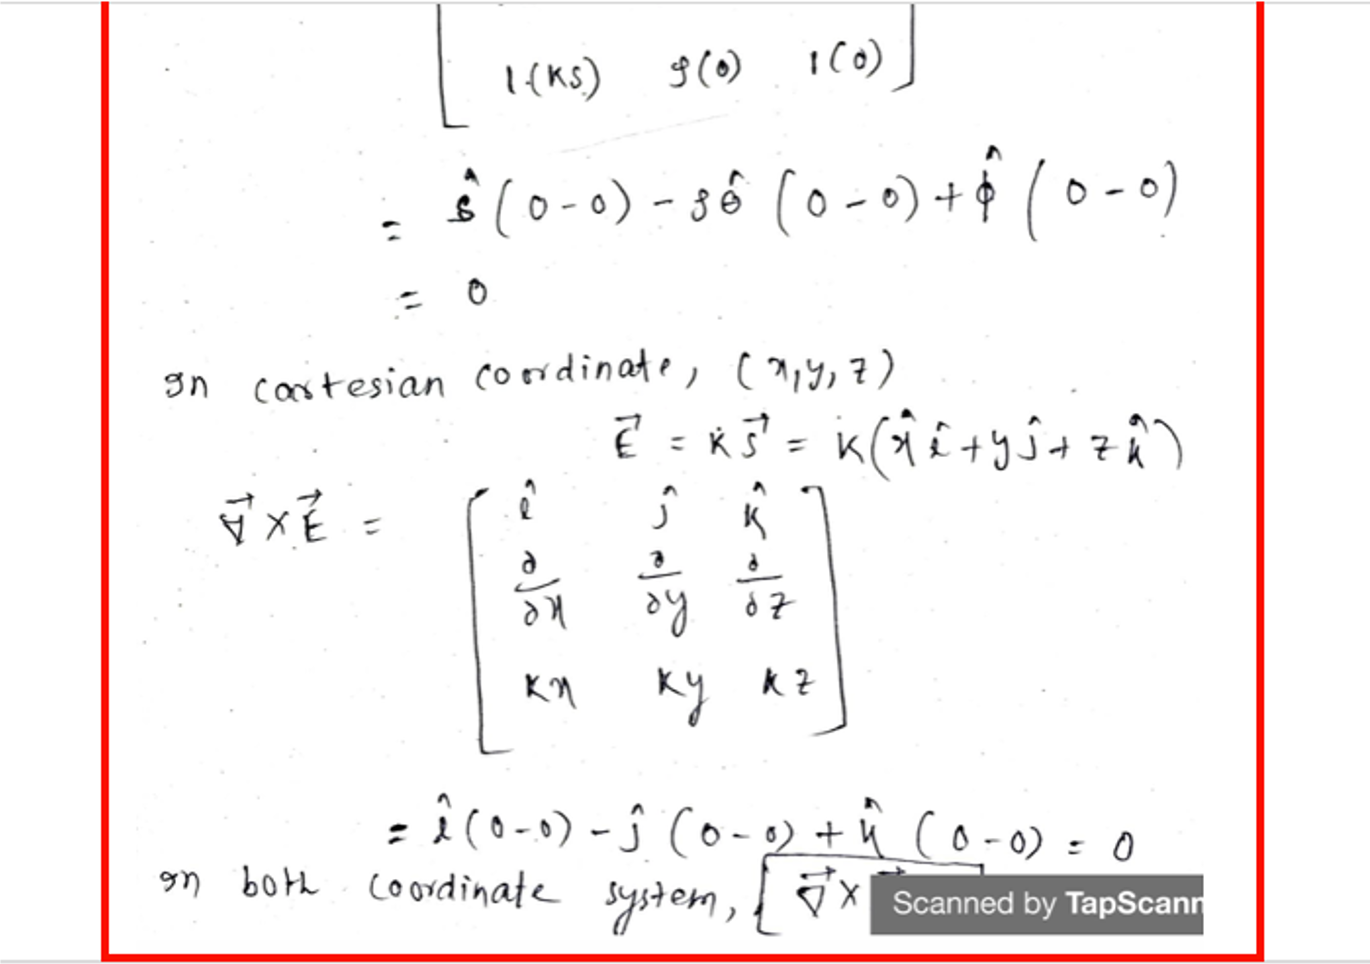 1(ks) s(0) 1(0)
= ŝ (0-0) - sθ̂ (0-0) + φ̂ (0-0)
= 0
In cartesian coordinate, (x,y,z)
E⃗ = k s⃗ = k(x̂ î + y ĵ + z k̂)
∇⃗ × E⃗ =
î ĵ k̂
∂/∂x ∂/∂y ∂/∂z
kx ky kz
= î (0-0) - ĵ (0-0) + k̂ (0-0) = 0
In both coordinate system, ∇⃗ ×
Scanned by TapScann